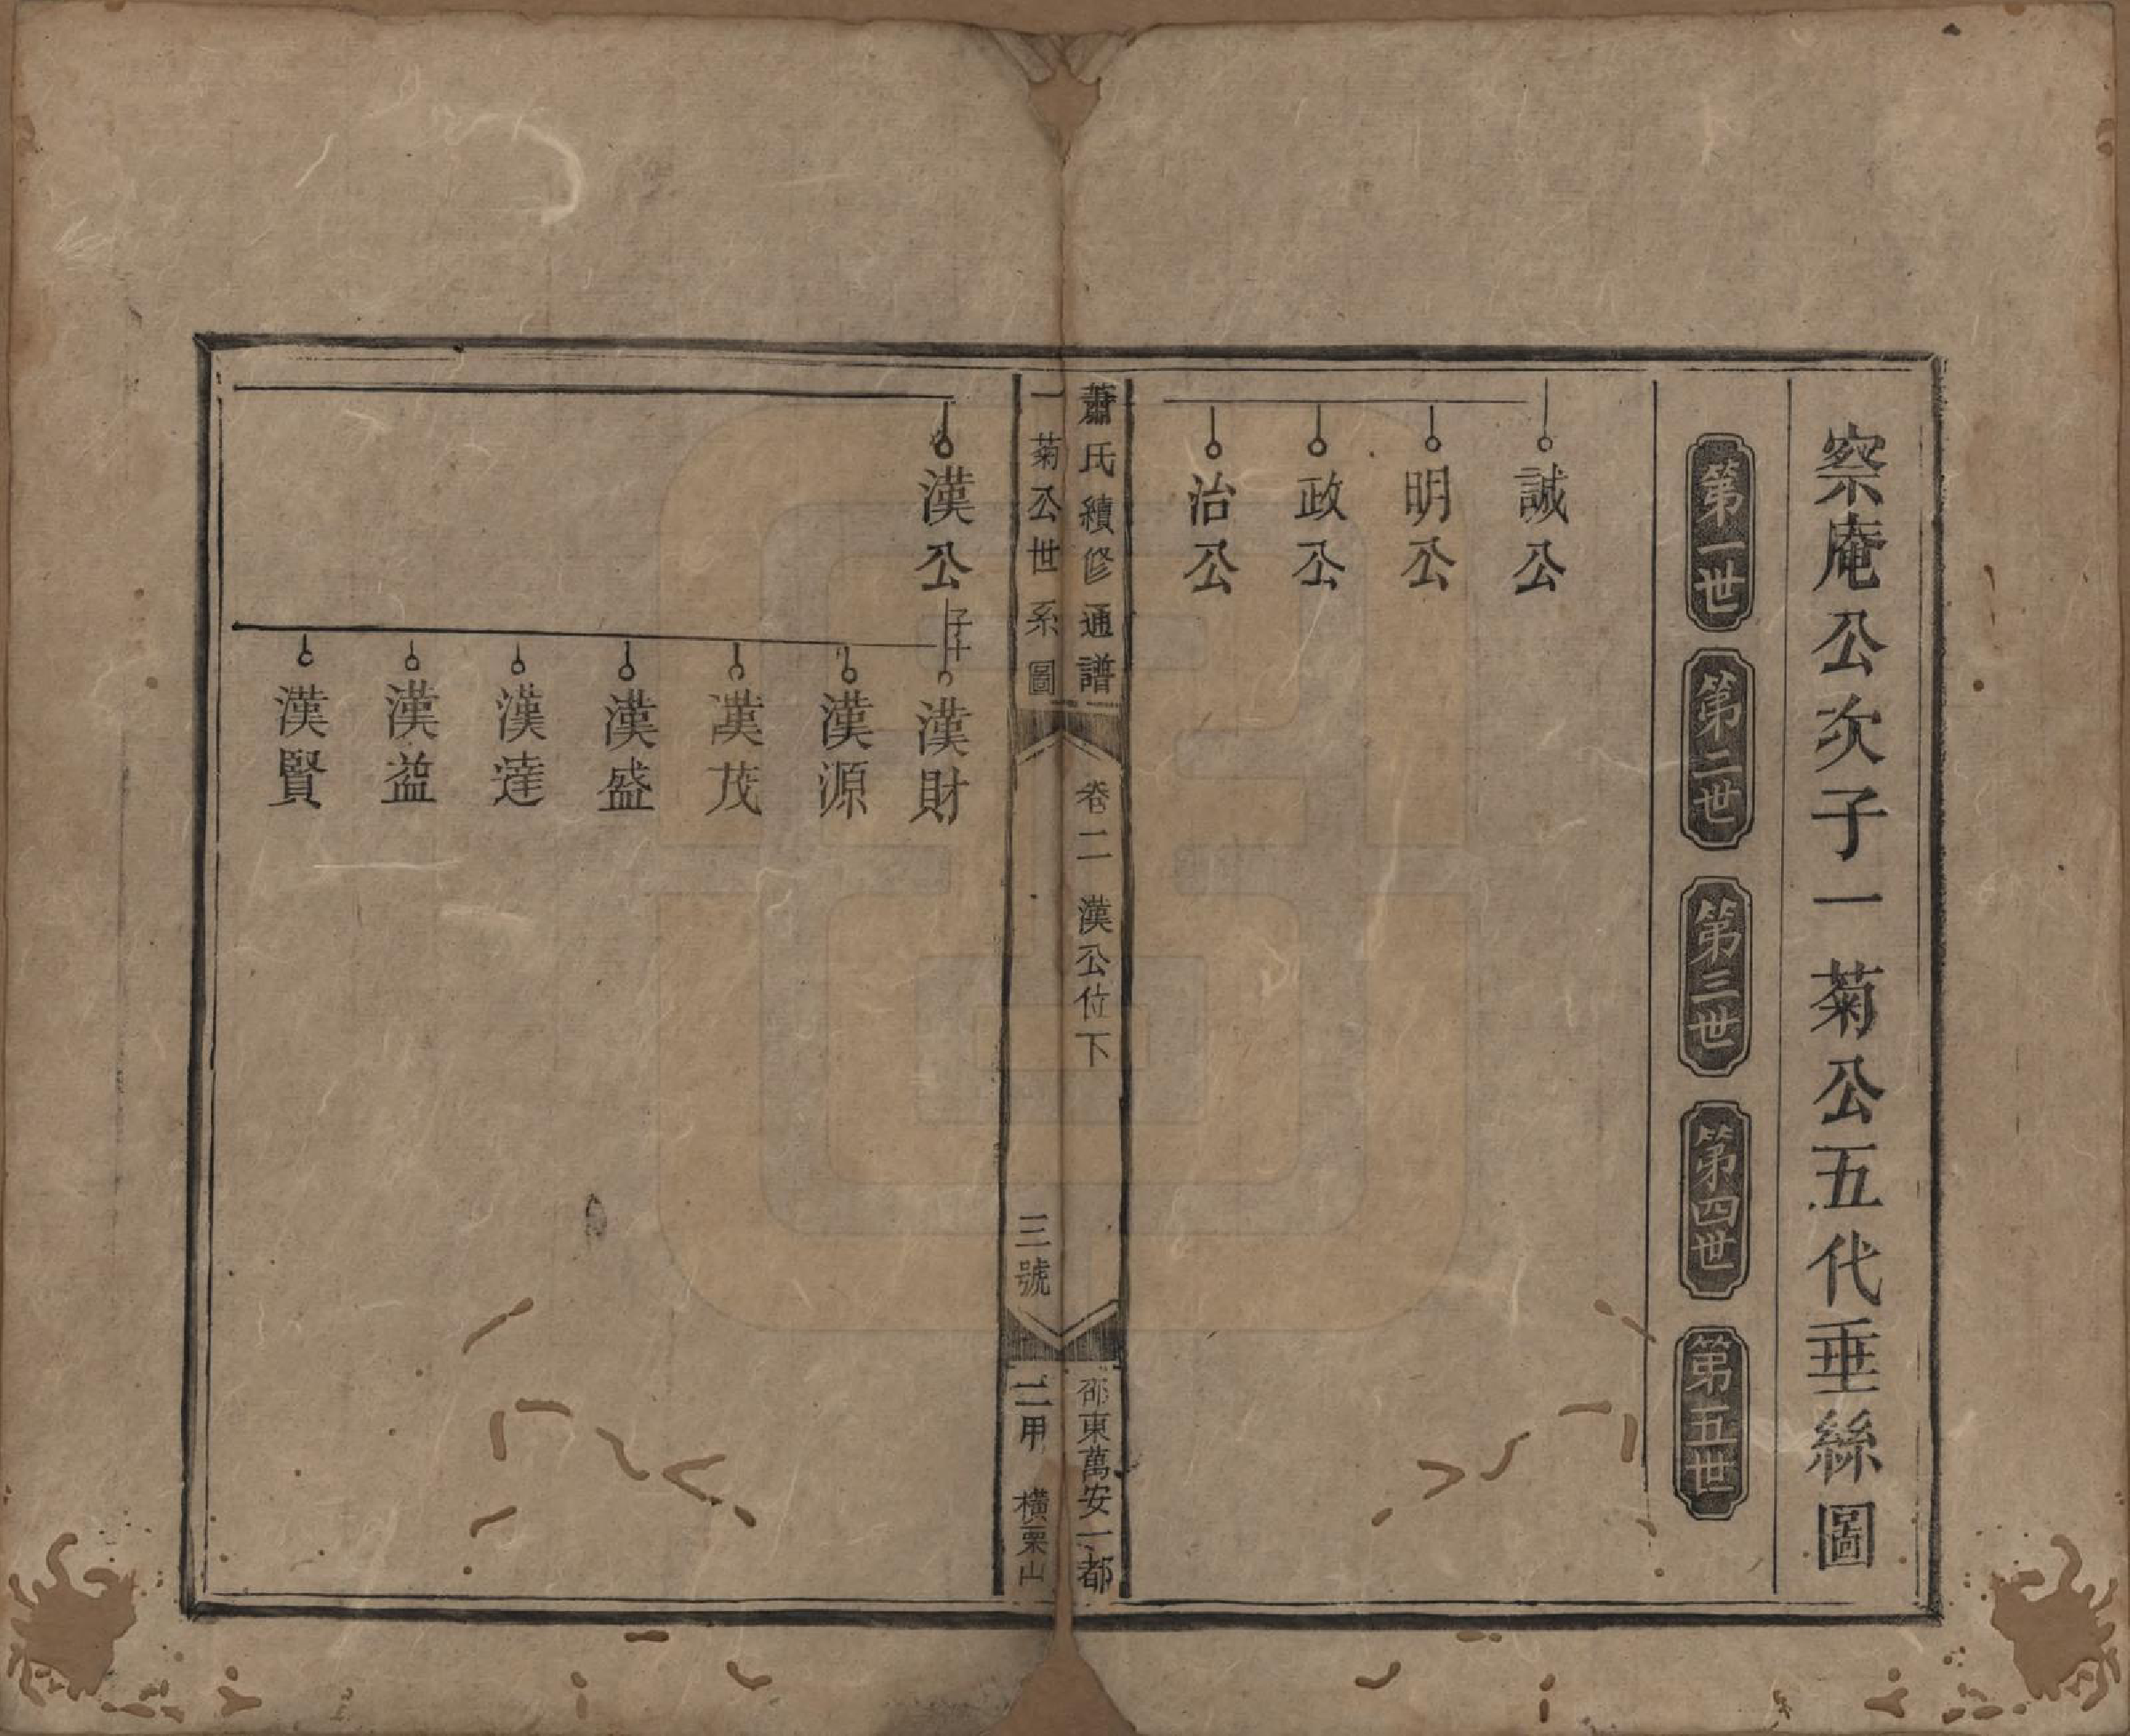 察庵公次子一菊公五代垂絲圖
第一世
第二世
第三世
第四世
第五世
誠公
明公
政公
治公
蕭氏續修通譜
卷二 漢公位下
邵東萬安一都
一菊公世系圖
三號
二甲 橫栗山
漢公
子十
漢財
漢源
漢茂
漢盛
漢達
漢益
漢賢